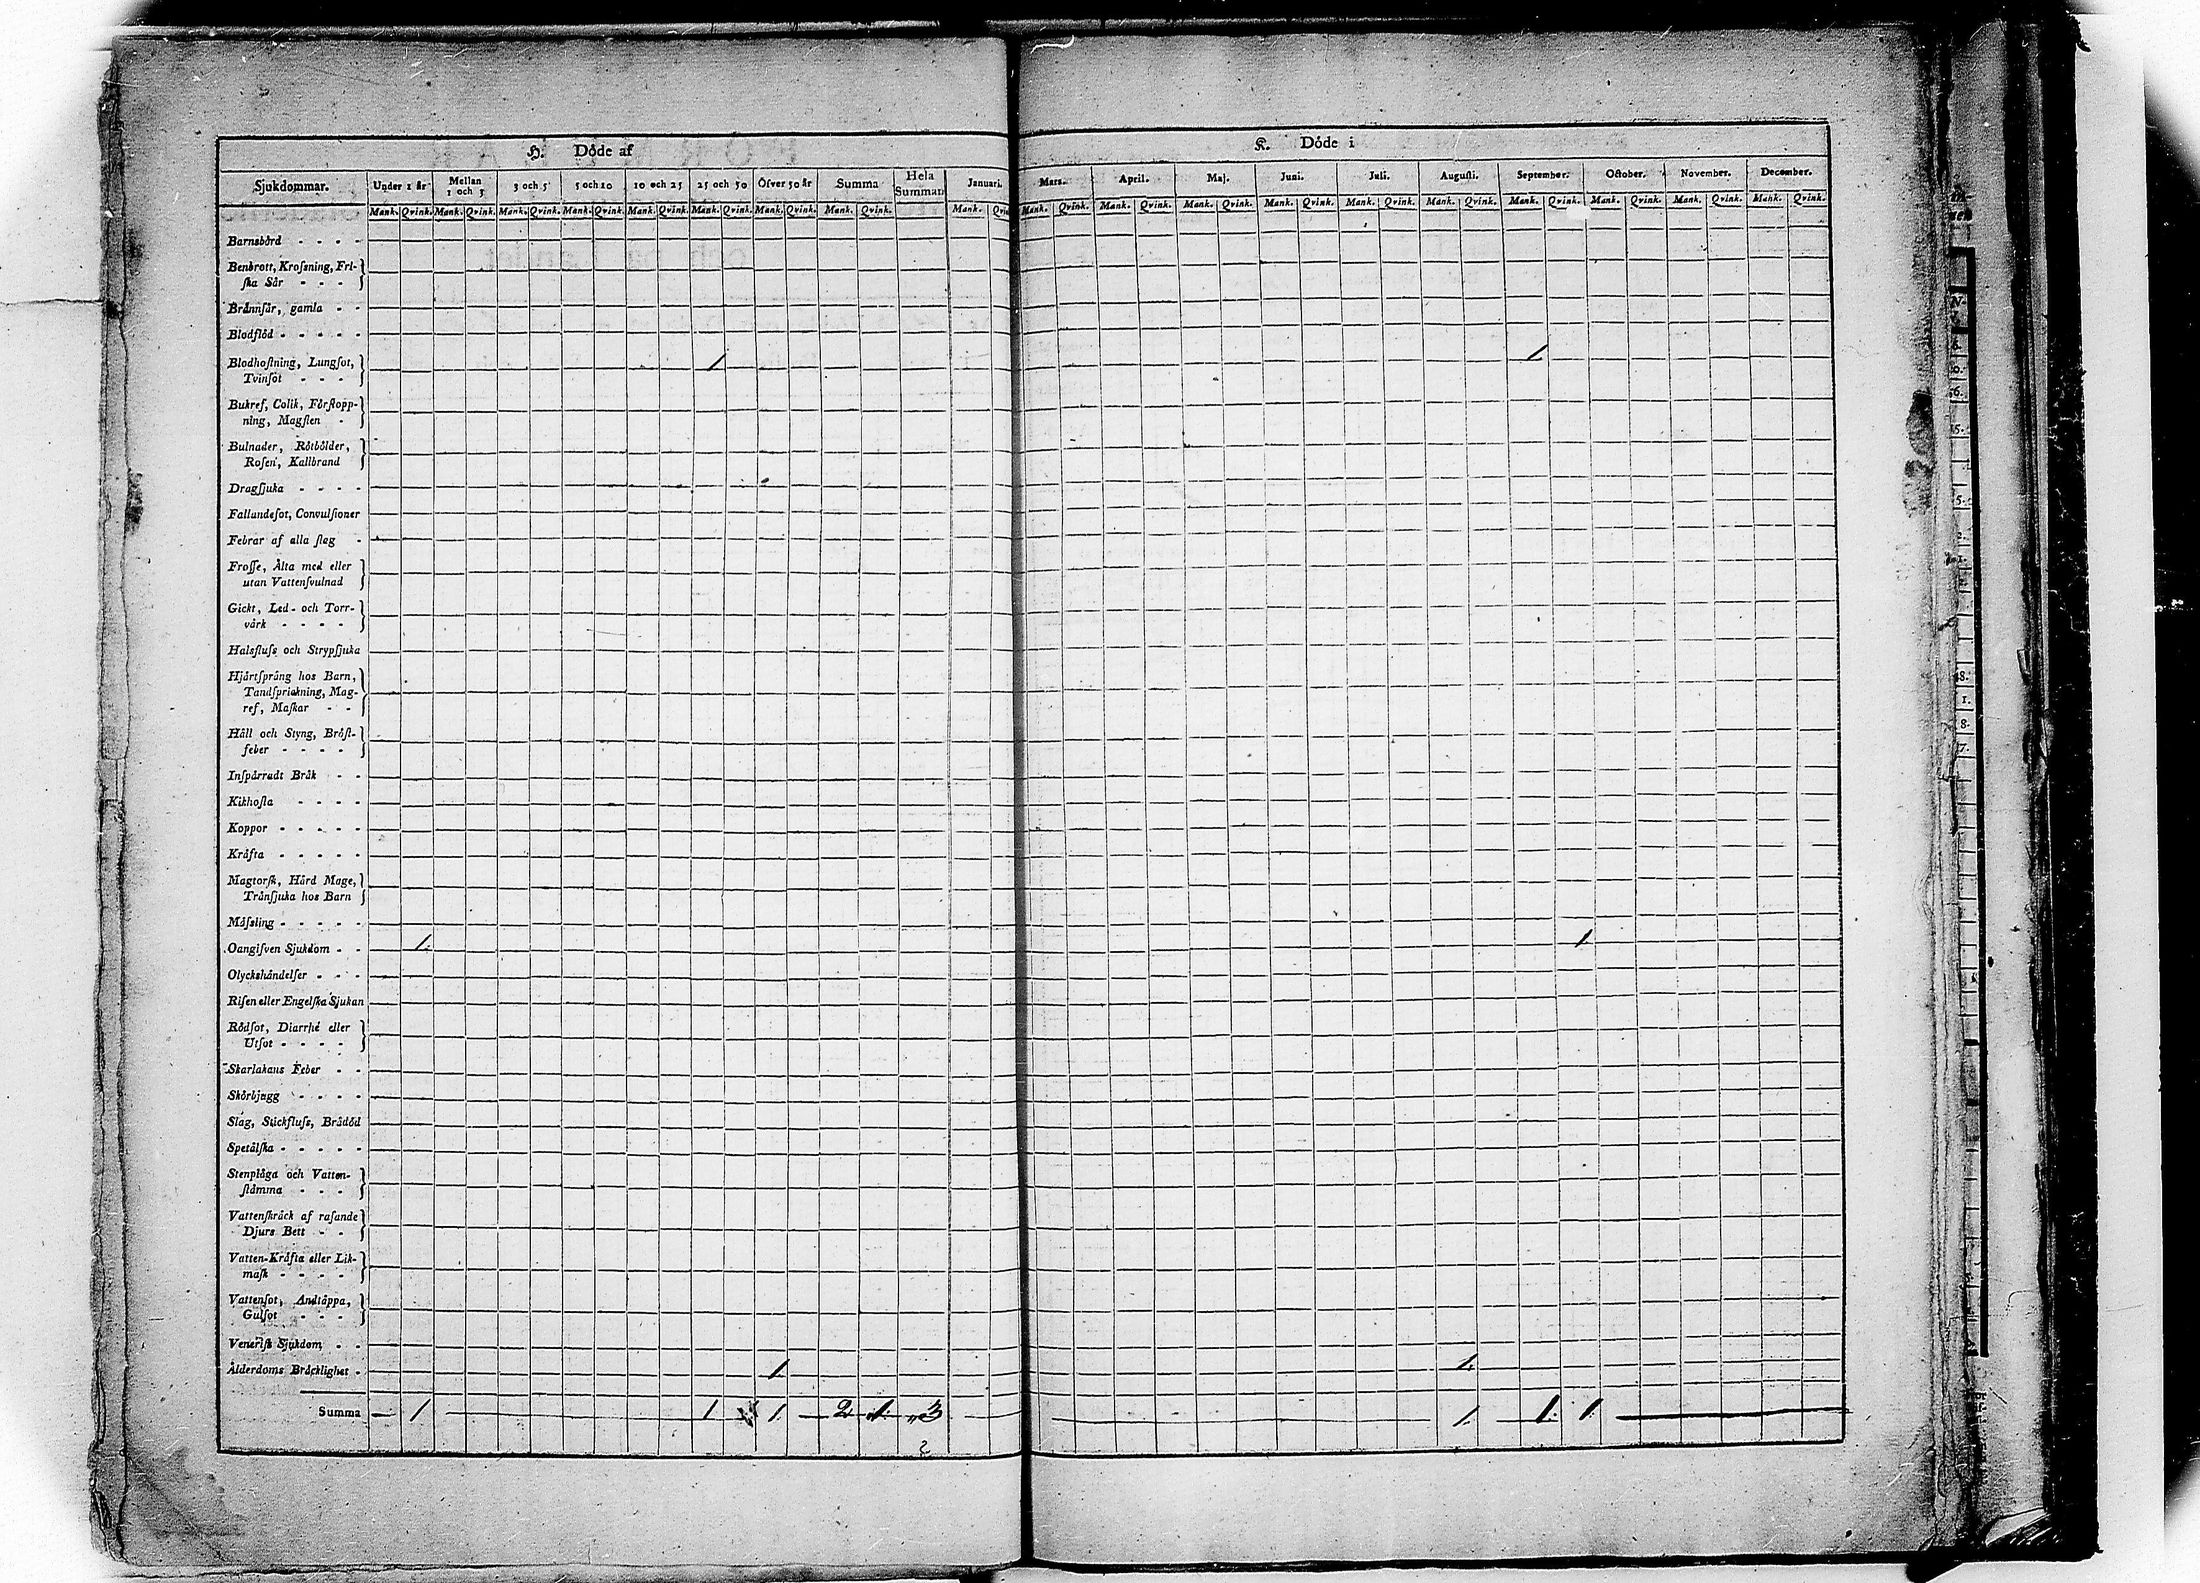 H. Döde af
K. Döde i
Sjukdommar. Under 1 år Mellan 1 och 3 3 och 5 5 och 10 10 och 25 25 och 50 Öfver 50 år Summa Hela Summan Januari. Mars. April. Maj. Juni. Juli. Augusti. September. October. November. December.
Mank. Qvink. Mank. Qvink. Mank. Qvink. Mank. Qvink. Mank. Qvink. Mank. Qvink. Mank. Qvink. Mank. Qvink. Mank. Mank. Qvink. Mank. Qvink. Mank. Qvink. Mank. Qvink. Mank. Qvink. Mank. Qvink. Mank. Qvink. Mank. Qvink. Mank. Qvink. Mank. Qvink.
Barnsbörd - - - -
Benbrott, Krossning, Fri-
ska Sår - - -
Brännsår, gamla - -
Blodflöd - - - - -
Blodhostning, Lungsot, 1 1
Tvinsot - - -
Bukref, Colik, Förstopp-
ning, Magsten -
Bulnader, Rötbölder,
Rosen, Kallbrand
Dragsjuka - - - -
Fallandesot, Convulsioner
Febrar af alla slag -
Frosse, Älta med eller
utan Vattensvulnad
Gickt, Led- och Torr-
värk - - - -
Halsfluss och Strypsjuka
Hjärtsprång hos Barn,
Tandsprickning, Mag-
ref, Maskar - -
Håll och Styng, Bröst-
feber - - - -
Inspärradt Bråk - -
Kikhosta - - - -
Koppor - - - - -
Kräfta - - - - -
Magtorsk, Hård Mage,
Trånsjuka hos Barn
Mässling - - - - -
Oangifven Sjukdom - - 1 1
Olyckshändelser - - -
Risen eller Engelska Sjukan
Rödsot, Diarrhé eller
Utsot - - - -
Skarlakans Feber - -
Skörbjugg - - - -
Slag, Stickfluss, Brådöd
Spetälska - - - - -
Stenplåga och Vatten-
stämma - - -
Vattenskräck af rasande
Djurs Bett - -
Vatten-Kräfta eller Lik-
mask - - - -
Vattensot, Andtäppa,
Gulsot - - -
Venerisk Sjukdom - -
Ålderdoms Bräcklighet - 1 1
Summa 1 1 1 2 1 3 1 1 1